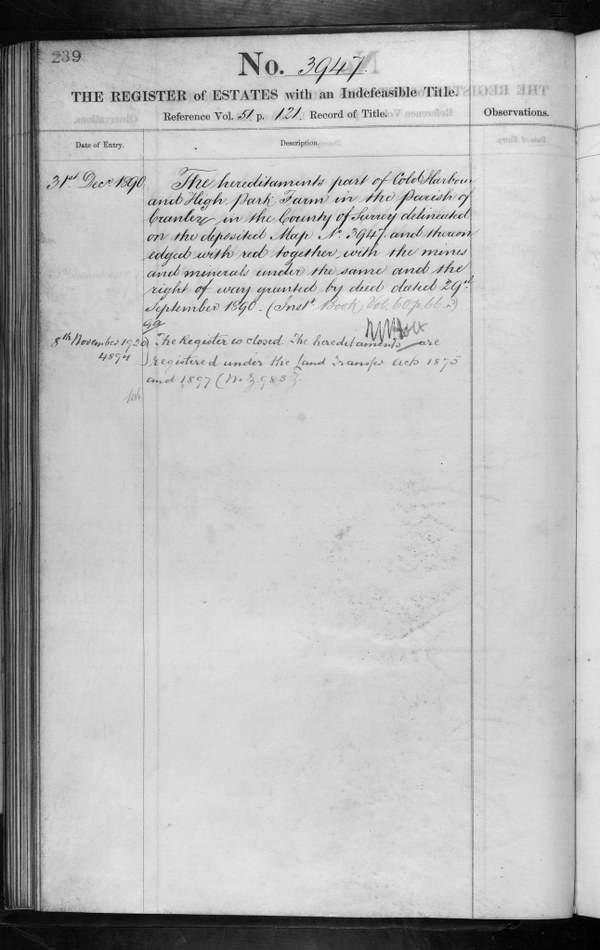 239
No. 3947
THE REGISTER of ESTATES with an Indefeasible Title.
Reference Vol. 51 p. 121. Record of Title.
Observations.
Date of Entry.
Description.
31st Decr 1890
The hereditaments part of Cold Harbour
and High Park Farm in the Parish of
Cranley in the County of Surrey delineated
on the deposited Map No 3947. and thereon
edged with red together with the mines
and minerals under the same and the
right of way granted by deed dated 29th
September 1890. (Inst. Book, Vol. 60 p. 66.)
8th November 1920
4894
The Register is closed The hereditaments are
registered under the Land Transfer Acts 1875
and 1897